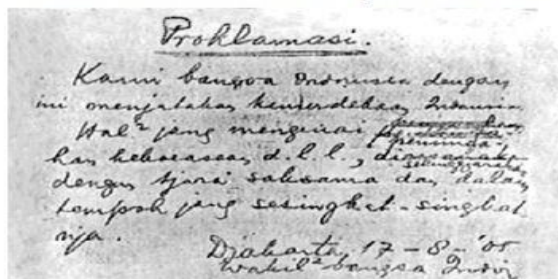 Proklamasi.
Kami bangsa Indonesia dengan
ini menjatakan kemerdekaan Indonesia.
Hal² jang mengenai
peminda-
han kekoeasaan d.l.l., diselenggarakan
dengan tjara saksama dan dalam
tempoh jang sesingkat-singkat
nja.
Djakarta, 17 - 8 - '05
Wakil² bangsa Indon